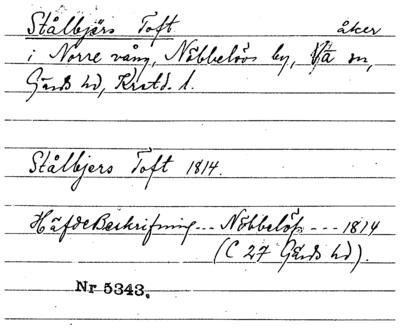 Stålbjärs Toft åker
i Norre vång, Nöbbelövs by, Vä sn,
Gärds hd, Krstd. l.
Stålbjers Toft 1814.
HäfdeBeskrifning --- Nöbbelöf --- 1814
(C 27 Gärds hd).
Nr 5343.